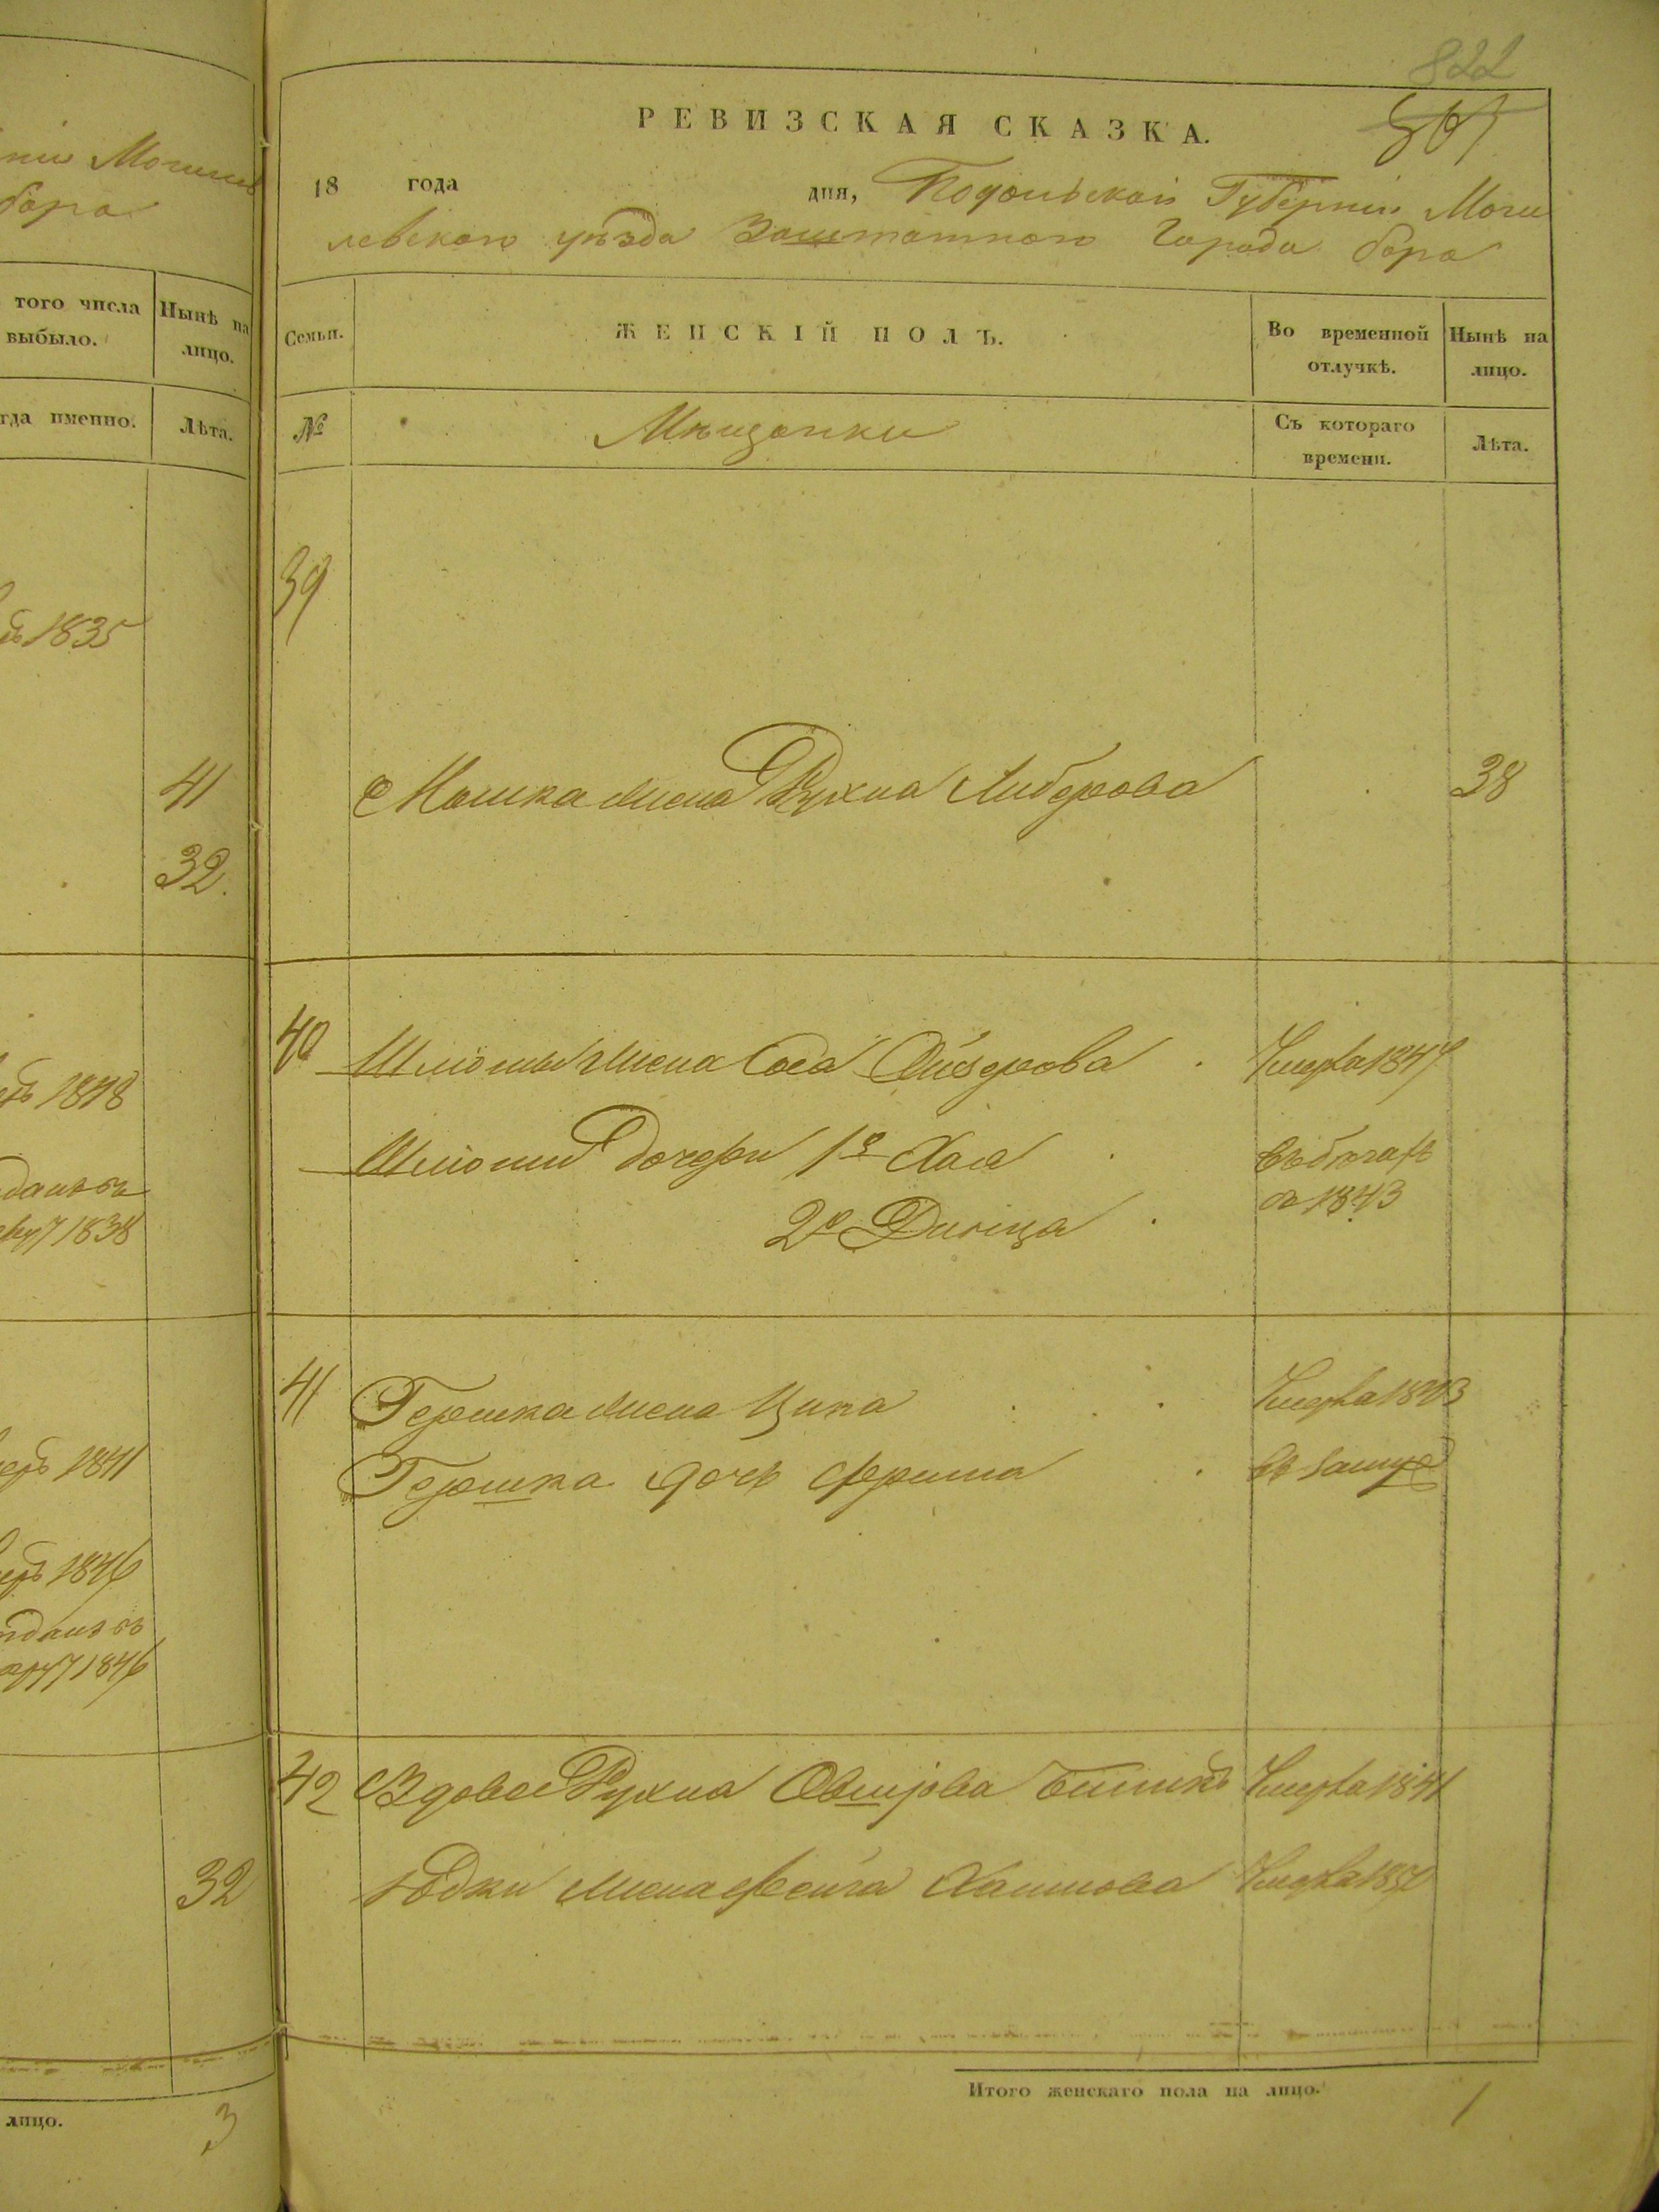 822
РЕВИЗСКАЯ СКАЗКА.
18 года дня, Подольской Губерніи Моги
левского уѣзда Заштатного Города Бара
Семьи.
ЖЕНСКІЙ ПОЛЪ.
Во временной отлучкѣ.
Нынѣ на лицо.
№
Мѣщанки
Съ котораго времени.
Лѣта.
39
Мошка жена Рухля Либерова 38
40 Шліомы жена Сося Умерла 1847
Шліомы дочери 1я Хая въ бѣгахъ
2я съ 1843
41 Гершка жена Ципа Умерла 1843
Гершка дочь Фрима въ замуж
42 Вдова Рухля Умерла 1841
жена Фейга Хаимова Умерла 1850
Итого женскаго пола на лицо. 1
ніи Могил
Бара
того числа выбыло.
Нынѣ на лицо.
гда именно.
Лѣта.
1835
41
32
1848
1838
1841
1846
1846
32
лицо. 3